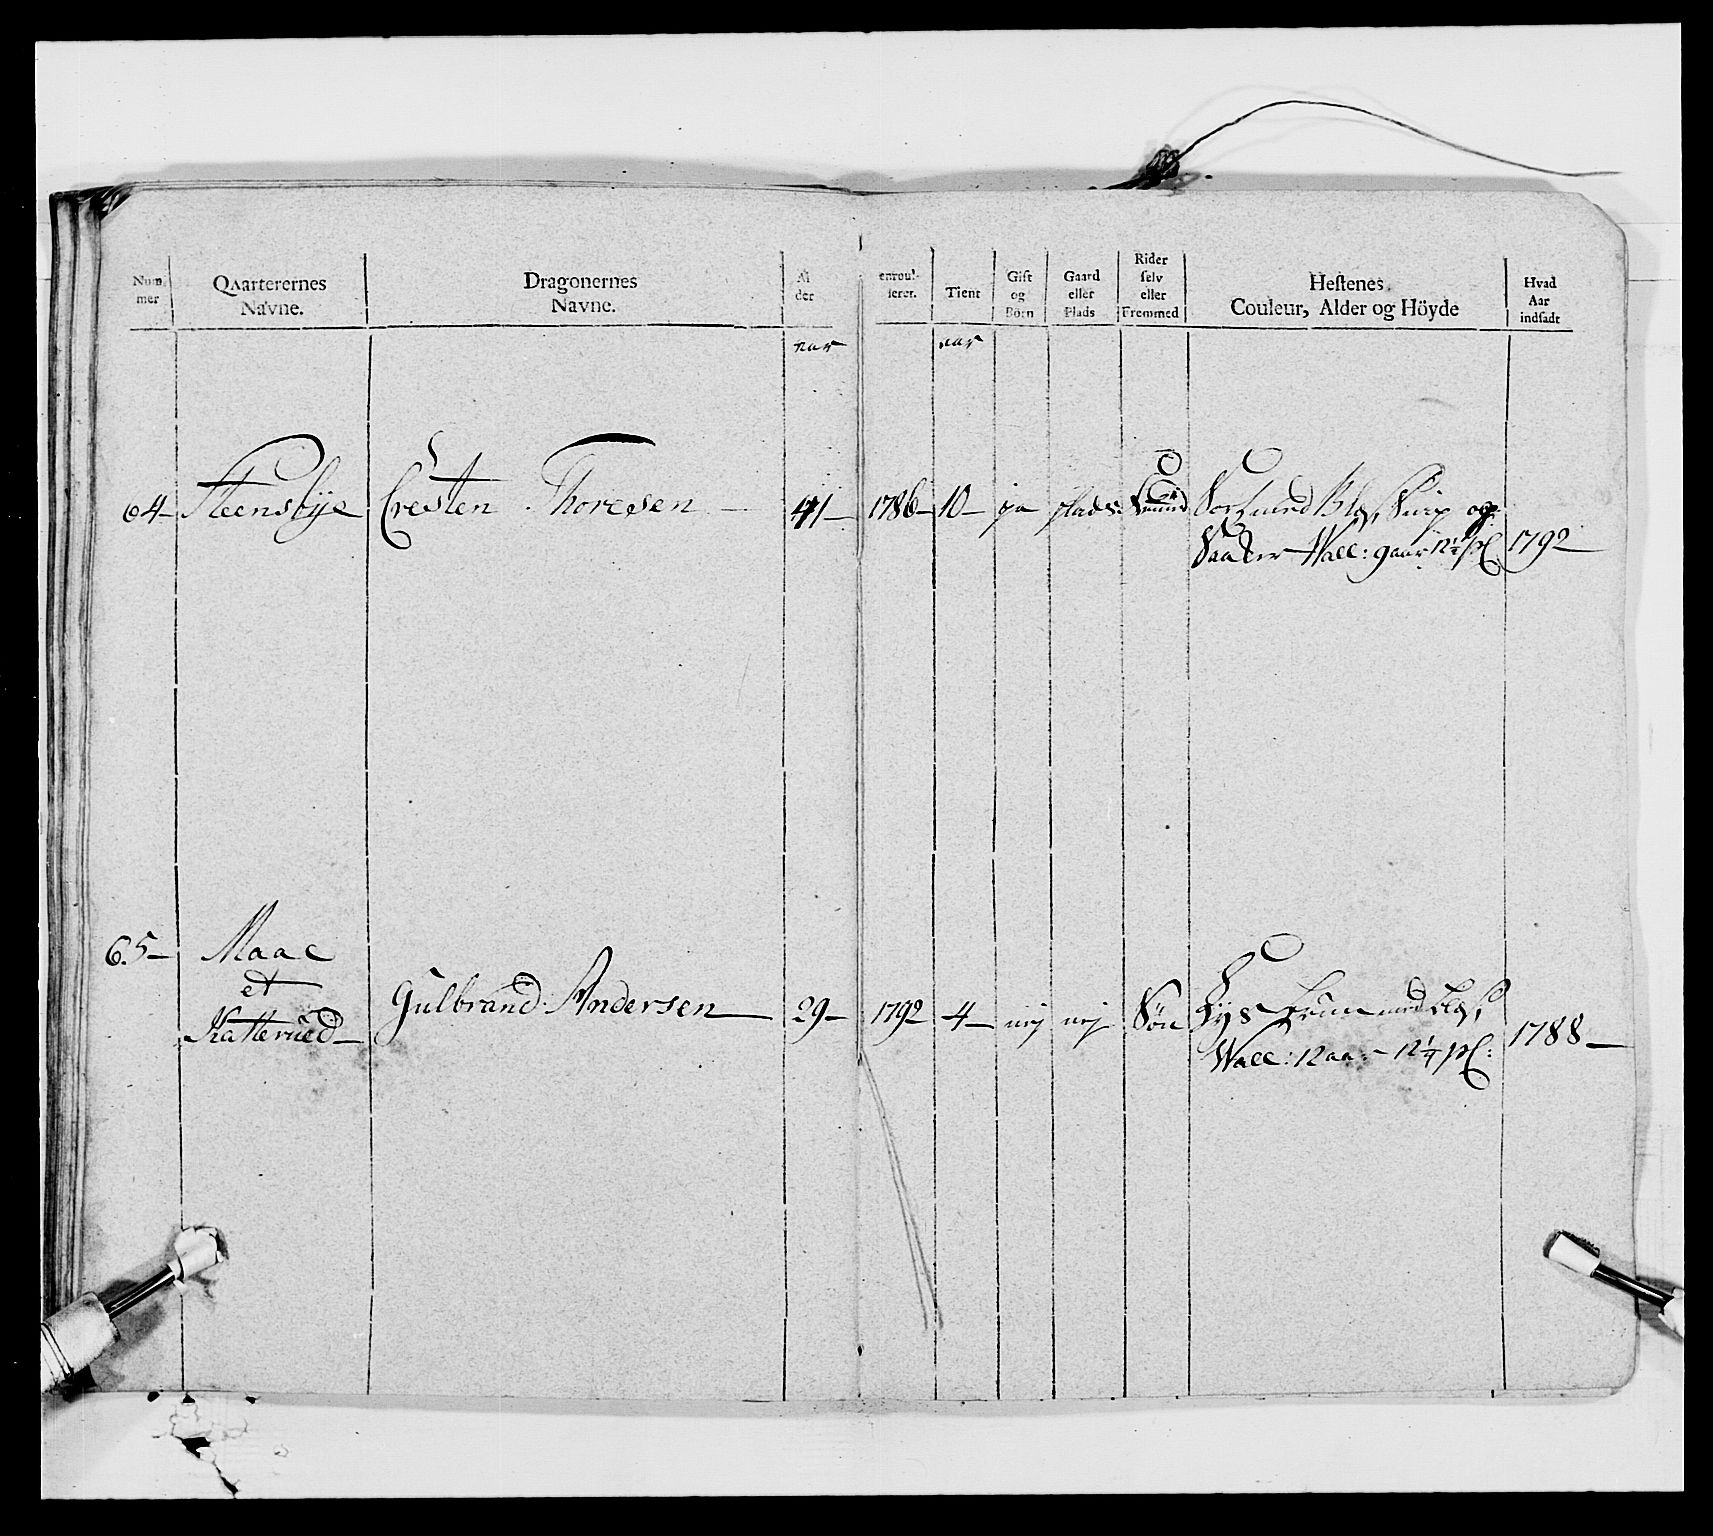 Num
mer
Qvarterernes
Navne.
Dragonernes
Navne.
Al
der
enroul-
lerer.
Tient
Gift
og
Börn
Gaard
eller
Plads
Rider
selv
eller
Fremmed
Hestenes
Couleur, Alder og Höyde
Hvad
Aar
indsadt
aar
aar
64- Steensbye Cresten Thoresen - 41- 1786- 10- ja plads: Fremd Sort med Blis, Snip og
Wall: 9 aar 12½ 1792-
65- Maae
et
Katterüed- Gülbrand Andersen- 29- 1792 4- nej nej Søn Lys brun med blis,
Wall: 12 aar- 12¼ 1788-